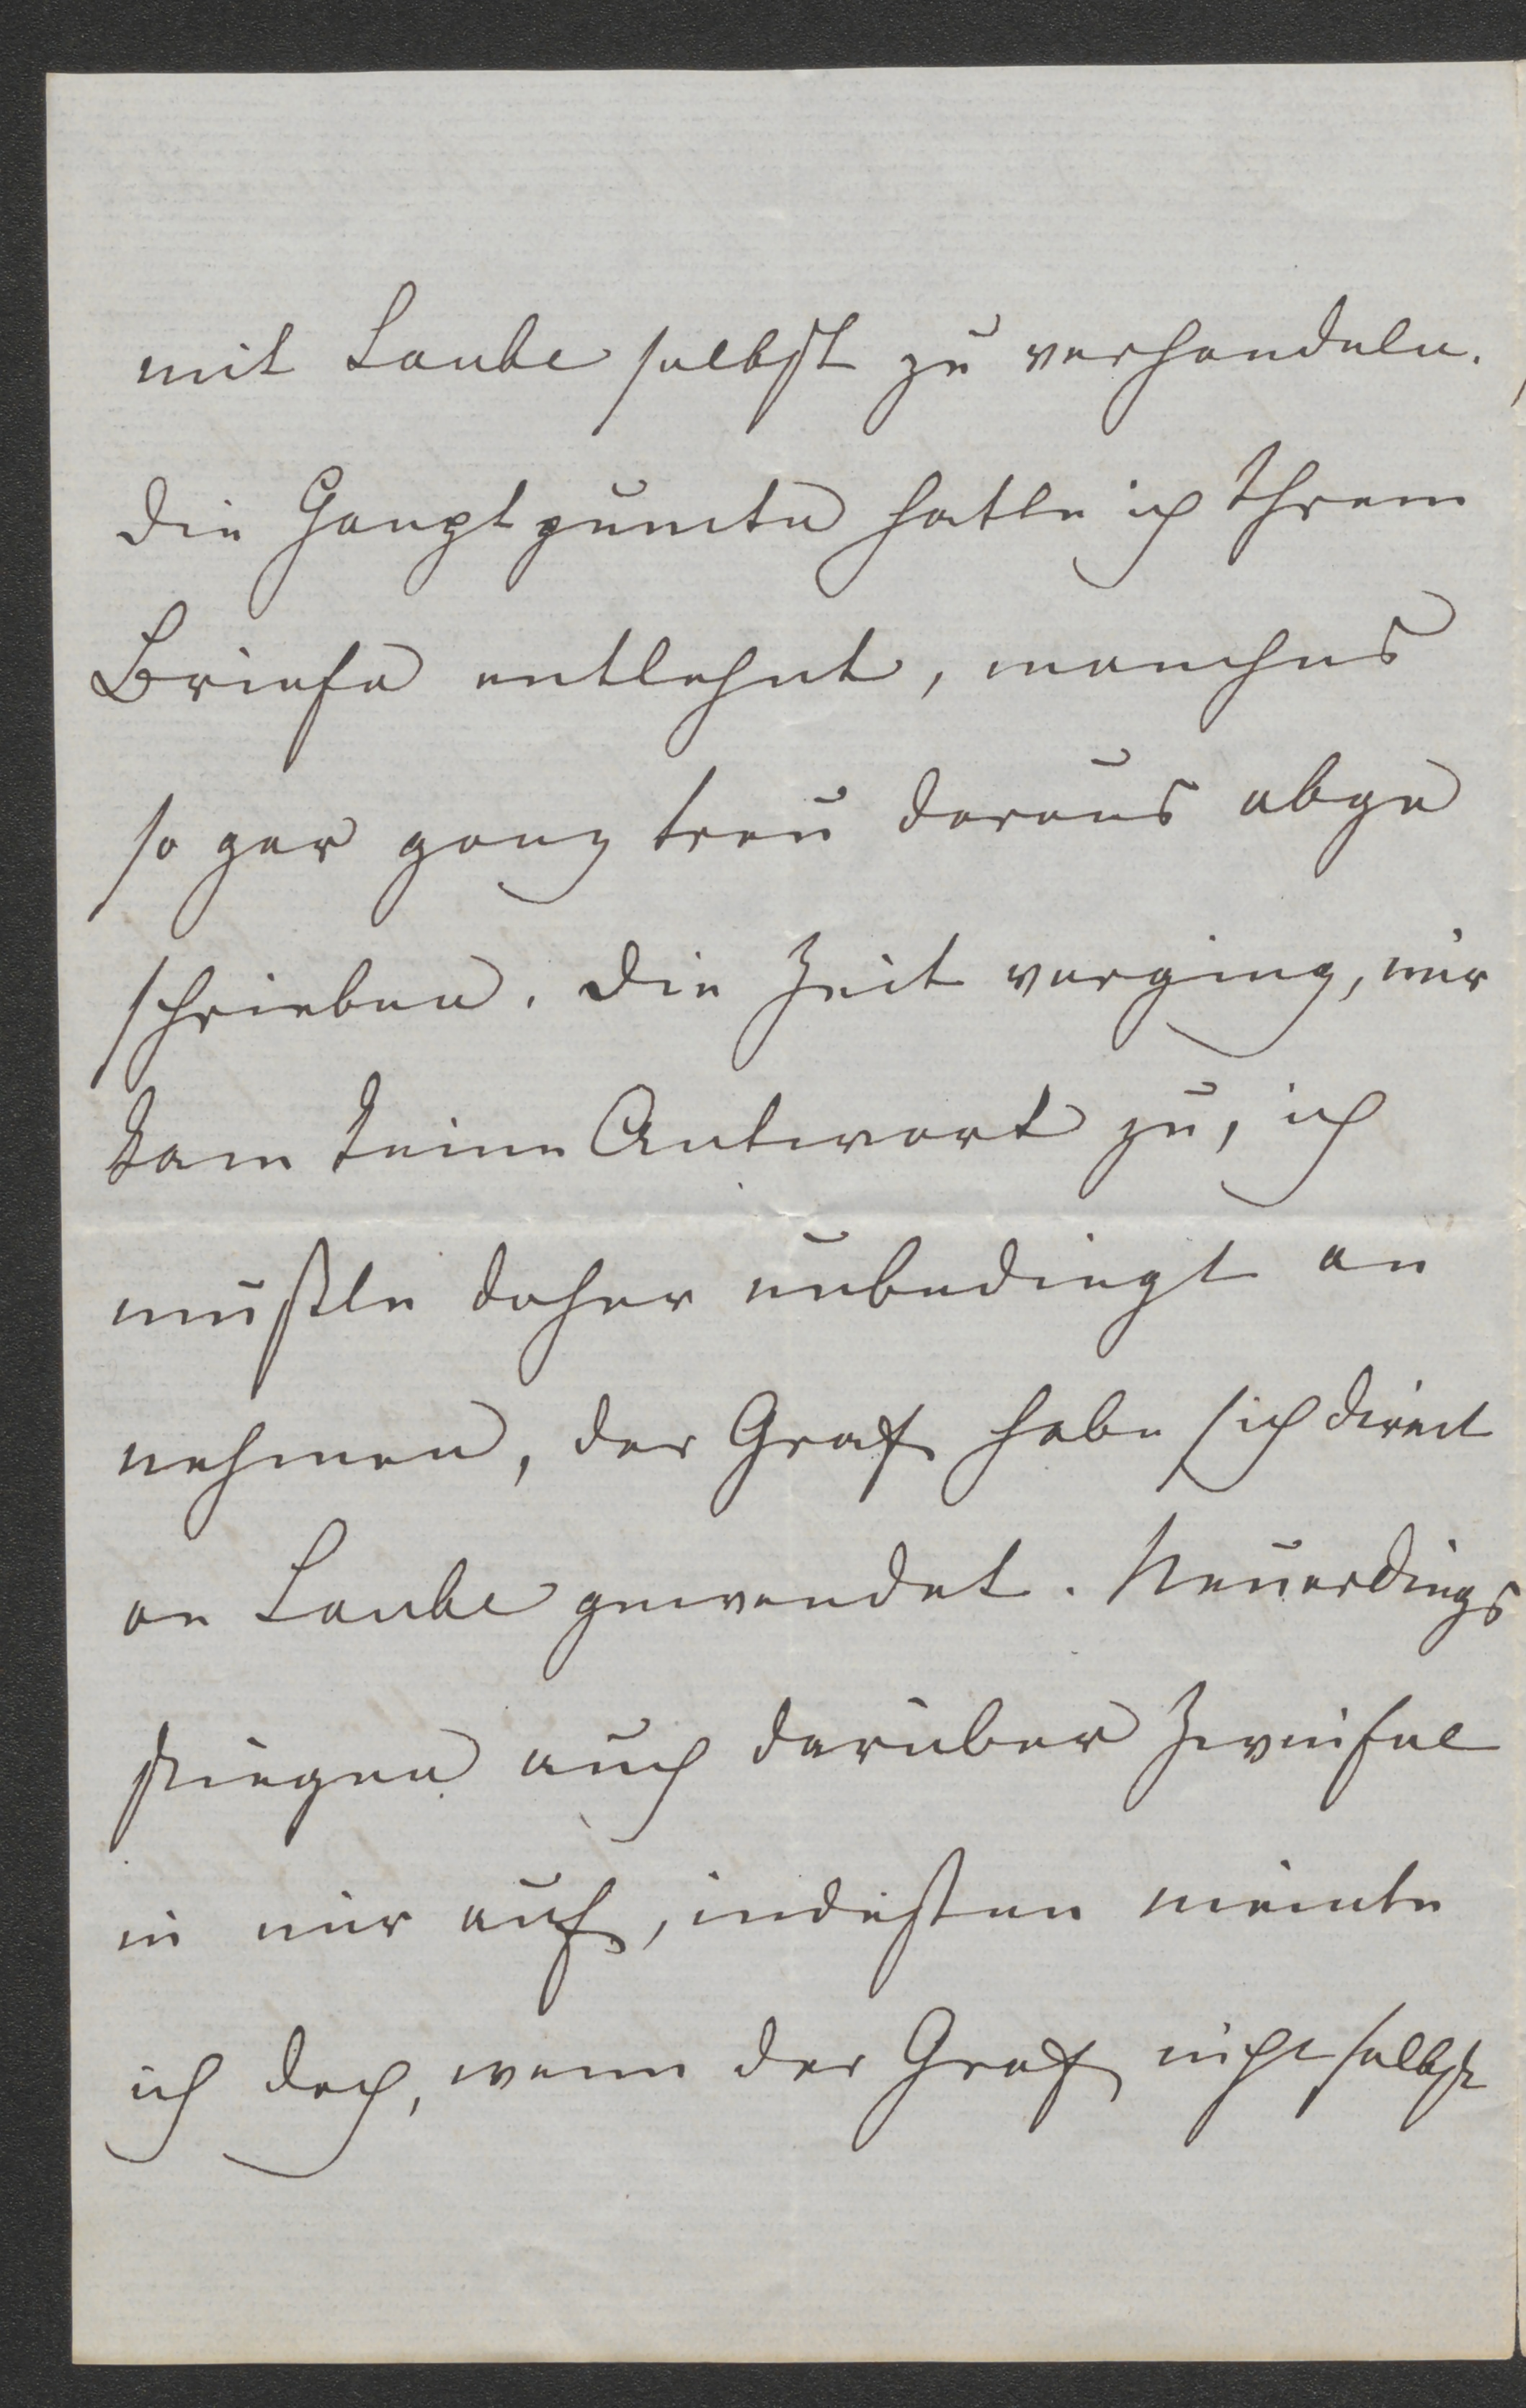 mit Laube selbst zu verhandeln.
Die Hauptpuncte hatte ich Ihrem
Briefe entlehnt, manches
so gar ganz treu daraus abge
schrieben. Die Zeit verging, mir
kam keine Antwort zu, ich
mußte daher unbedingt an
nehmen, der Graf habe sich direct
an Laube gewendet. Neuerdings
stiegen auch darüber Zweifel
in mir auf, indessen meinte
ich doch, wenn der Graf nicht selbst